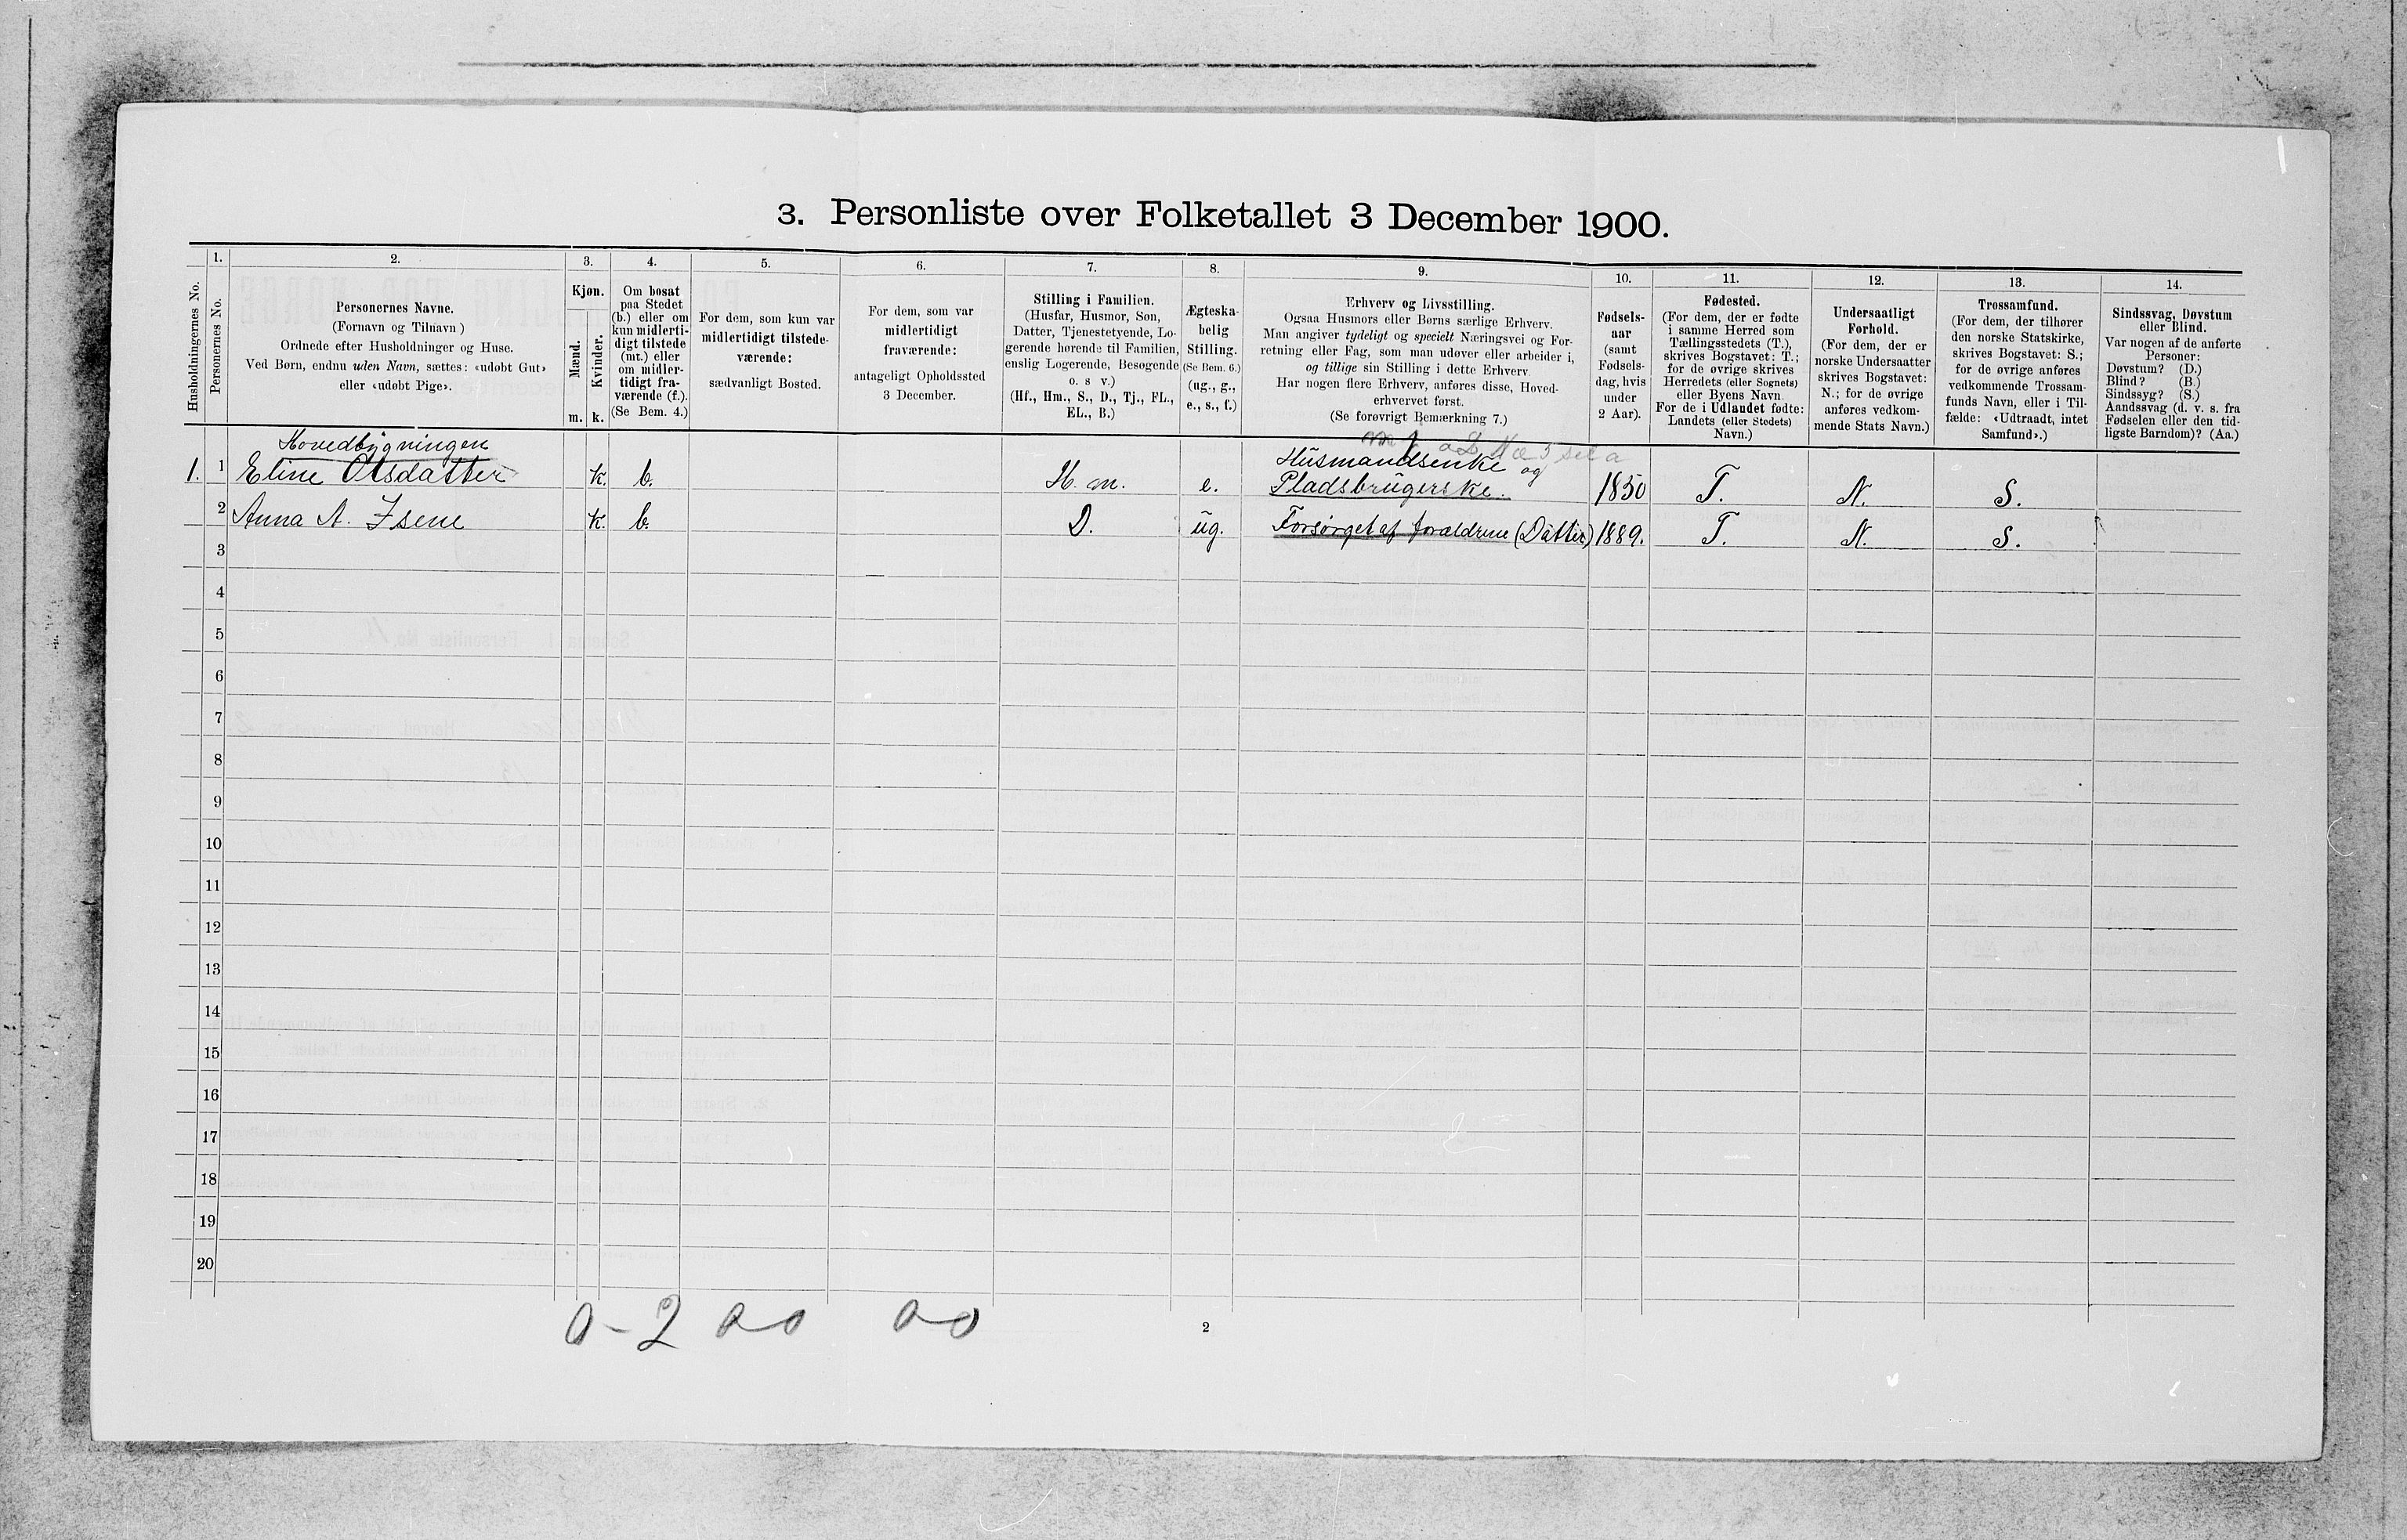 3. Personliste over Folketallet 3 December 1900.
Husholdningernes No.
1.
Personernes No.
2.
Personernes Navne.
(Fornavn og Tilnavn)
Ordnede efter Husholdninger og Huse.
Ved Børn, endnu uden Navn, sættes: «udøbt Gut»
eller «udøbt Pige».
3.
Kjøn.
Mænd.
Kvinder.
m. k.
4.
Om bosat
paa Stedet
(b.) eller om
kun midlerti-
digt tilstede
(mt.) eller
om midler-
tidigt fra-
værende (f.).
(Se Bem. 4.)
5.
For dem, som kun var
midlertidigt tilstede-
værende:
sædvanligt Bosted.
6.
For dem, som var
midlertidigt
fraværende:
antageligt Opholdssted
3 December.
7.
Stilling i Familien.
(Husfar, Husmor, Søn,
Datter, Tjenestetyende, Lo-
gerende hørende til Familien,
enslig Logerende, Besøgende
o. s v.)
(Hf., Hm., S., D., Tj., FL.,
EL., B.)
8.
Ægteska-
belig
Stilling.
(Se Bem. 6.)
(ug., g.,
e., s., f.)
9.
Erhverv og Livsstilling.
Ogsaa Husmors eller Børns særlige Erhverv.
Man angiver tydeligt og specielt Næringsvei og For-
retning eller Fag, som man udøver eller arbeider i,
og tillige sin Stilling i dette Erhverv.
Har nogen flere Erhverv, anføres disse, Hoved-
erhvervet først.
(Se forøvrigt Bemærkning 7.)
10.
Fødsels-
aar
(samt
Fødsels-
dag, hvis
under
2 Aar).
11.
Fødested.
(For dem, der er fødte
i samme Herred som
Tællingsstedets (T.),
skrives Bogstavet: T.;
for de øvrige skrives
Herredets (eller Sognets)
eller Byens Navn.
For de i Udlandet fødte:
Landets (eller Stedets)
Navn.)
12.
Undersaatligt
Forhold.
(For dem, der er
norske Undersaatter
skrives Bogstavet:
N.; for de øvrige
anføres vedkom-
mende Stats Navn.)
13.
Trossamfund.
(For dem, der tilhører
den norske Statskirke,
skrives Bogstavet: S.;
for de øvrige anføres
vedkommende Trossam-
funds Navn, eller i Til-
fælde: «Udtraadt, intet
Samfund».)
14.
Sindssvag, Døvstum
eller Blind.
Var nogen af de anførte
Personer:
Døvstum? (D.)
Blind? (B.)
Sindssyg? (S.)
Aandssvag (d. v. s. fra
Fødselen eller den tid-
ligste Barndom)? (Aa.)
Hovedbygningen
1. 1 Eline Olsdatter k. b. H. m. e. Husmandsenke og Pladsbrugerske. 1850 T. N. S.
2 Anna A. Isene k. b. D. ug. Forsørget af forældrene (Datter) 1889. T. N. S.
3
4
5
6
7
8
9
10
11
12
13
14
15
16
17
18
19
20
0-2 00 00
2